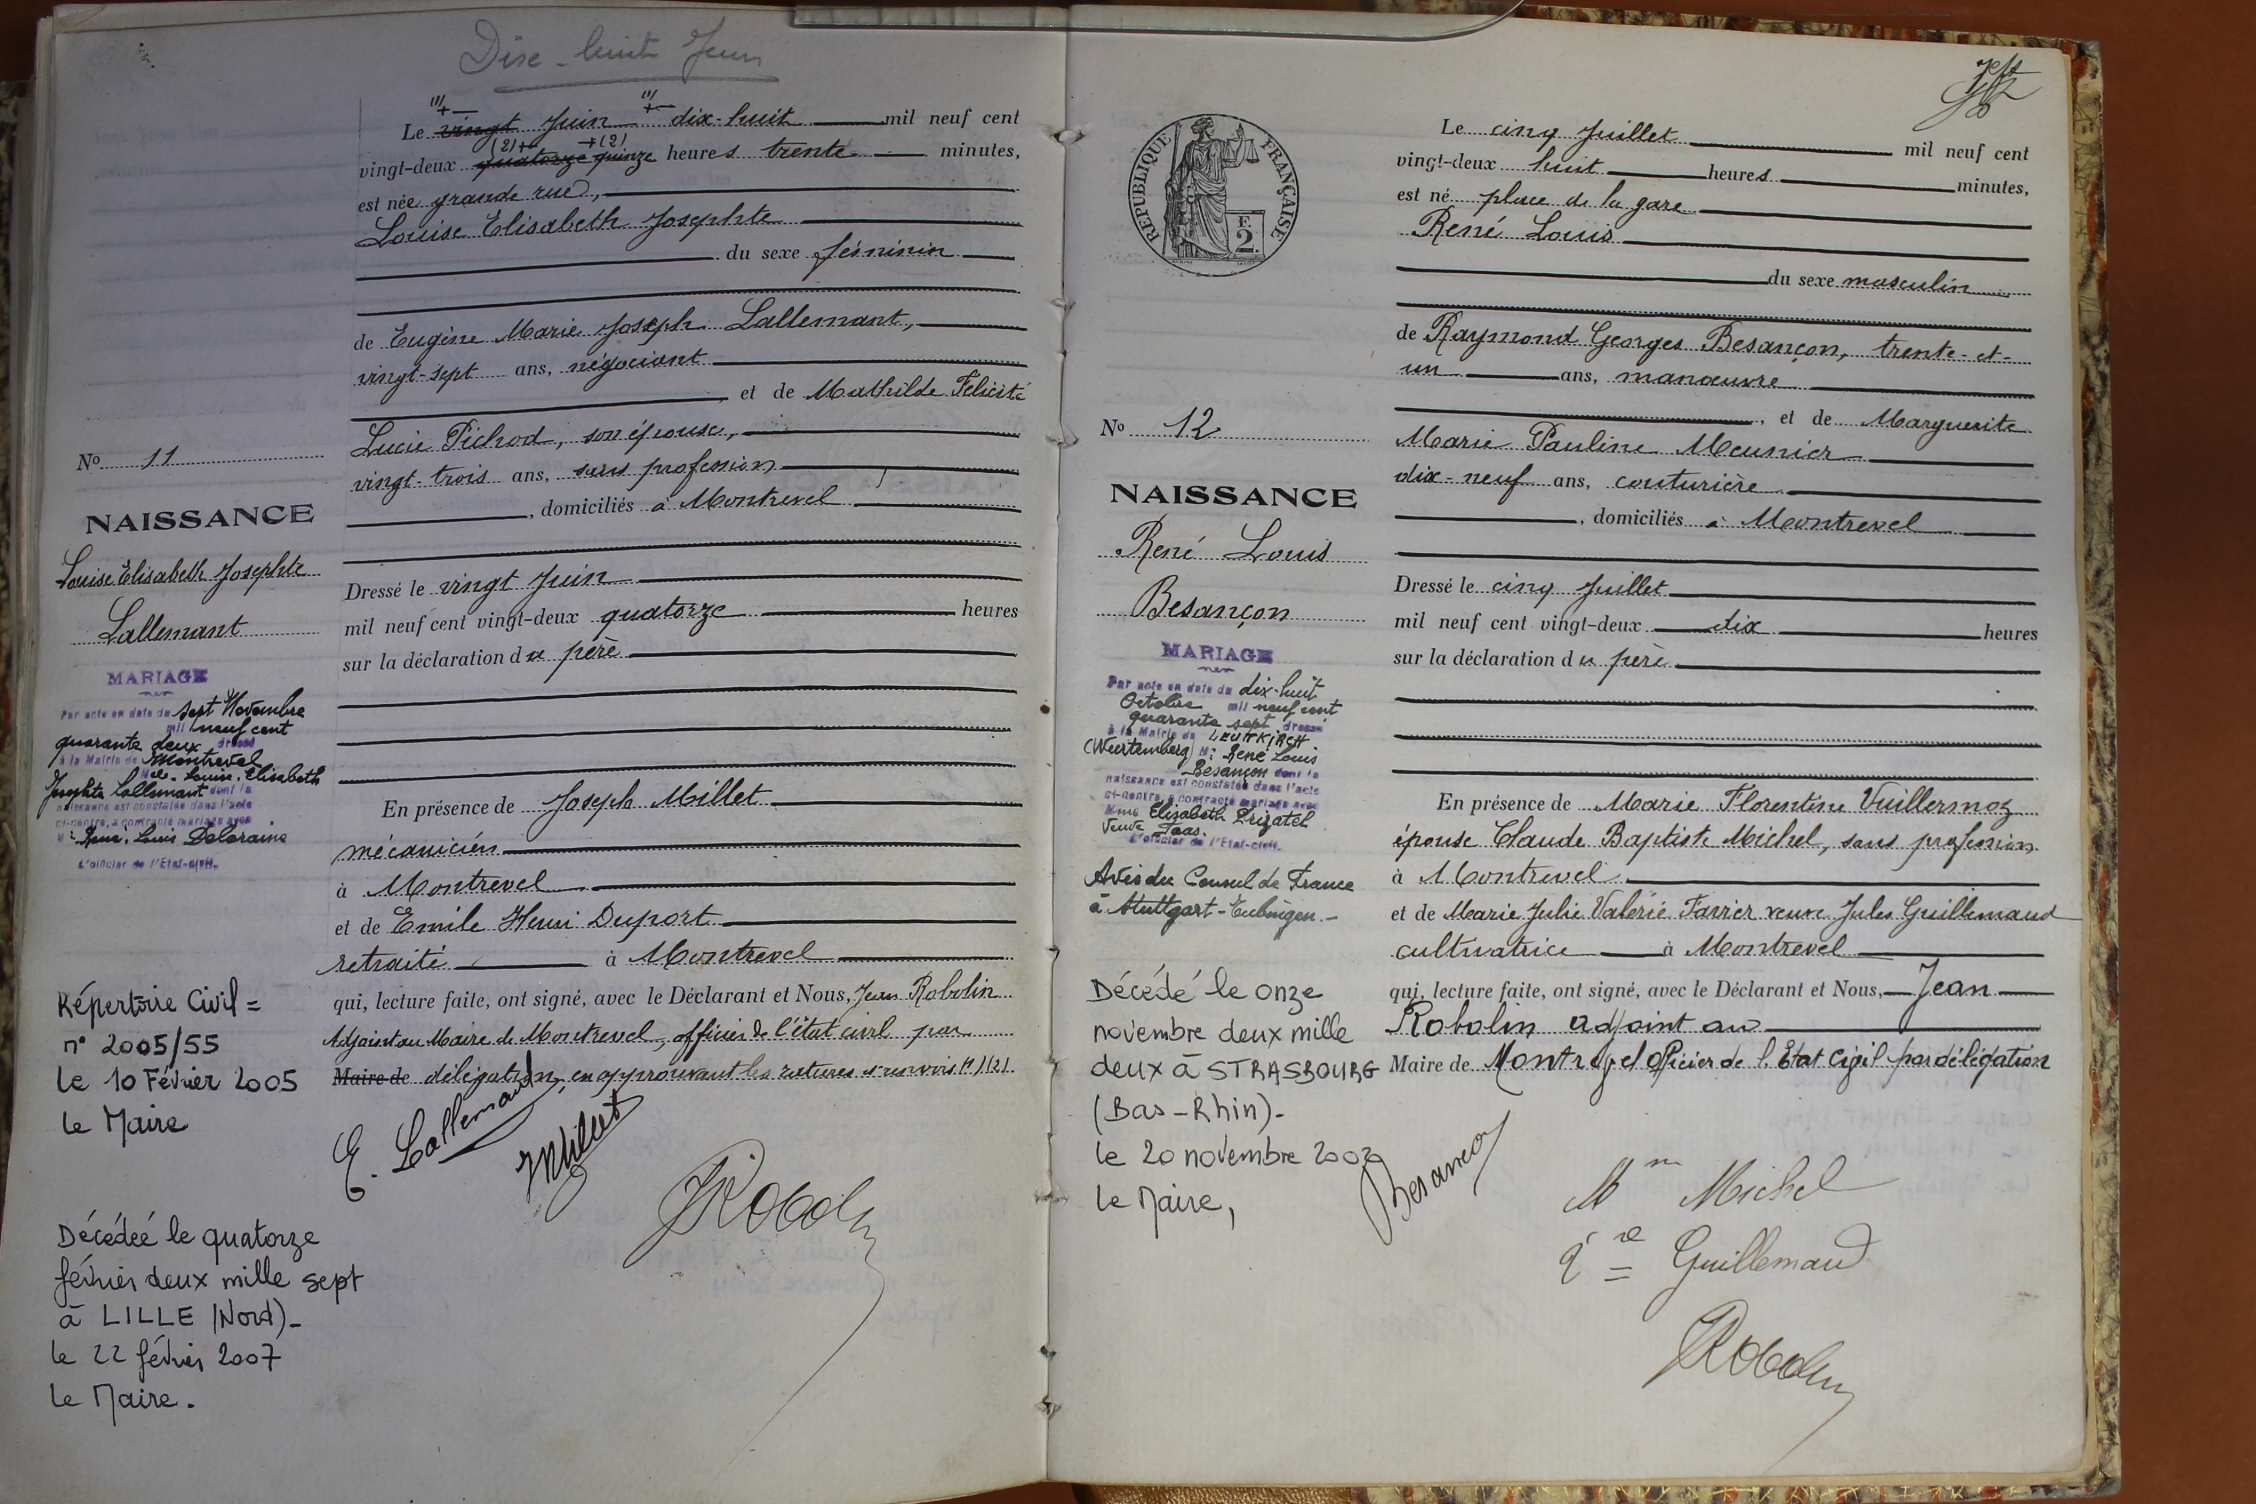 Dix-huit Juin
Le vingt Juin dix-huit mil neuf cent
vingt-deux quatorze quinze heures trente minutes,
est née grande rue,
Louise Elisabeth Josephte
du sexe féminin
de Eugène Marie Joseph Lallemant,
vingt-sept ans, négociant
, et de Mathilde Félicité
Lucie Pichod, son épouse,
vingt-trois ans, sans profession
, domiciliés à Montrevel
Dressé le vingt Juin
mil neuf cent vingt-deux quatorze heures
sur la déclaration du père
En présence de Joseph Millet
mécanicien
à Montrevel
et de Emile Henri Duport
retraité à Montrevel
qui, lecture faite, ont signé, avec le Déclarant et Nous, Jean Robolin
Adjoint au Maire de Montrevel, officier de l'état civil par
Maire de délégation, en approuvant les ratures et renvois (1) (2).
E. Lallemant
JMillet
JRobolin
No 11
NAISSANCE
Louise Elisabeth Josephte
Lallemant
MARIAGE
Par acte en date du sept Novembre
mil neuf cent
quarante deux dressé
à la Mairie de Montrevel
Melle Louise, Elisabeth
Josephte Lallemant dont la
naissance est constatée dans l'acte
ci-contre, a contracté mariage avec
M: René, Louis Deloraine
L'officier de l'Etat-civil.
Répertoire Civil =
n° 2005/55
le 10 Février 2005
le Maire
Décédée le quatorze
février deux mille sept
à LILLE (Nord)_
le 22 février 2007
le Maire.
RÉPUBLIQUE FRANÇAISE
F.
2.
Le cinq Juillet mil neuf cent
vingt-deux huit heures minutes,
est né place de la gare
René Louis
du sexe masculin
de Raymond Georges Besançon, trente-et-
un ans, manœuvre
, et de Marguerite
Marie Pauline Meunier
dix-neuf ans, couturière
, domiciliés à Montrevel
Dressé le cinq Juillet
mil neuf cent vingt-deux dix heures
sur la déclaration du père
En présence de Marie Florentine Vuillermoz
épouse Claude Baptiste Michel, sans profession
à Montrevel
et de Marie Julie Valérie Favier veuve Jules Guillemaud
cultivatrice à Montrevel
qui, lecture faite, ont signé, avec le Déclarant et Nous, Jean
Robolin adjoint au
Maire de Montrevel Officier de l'Etat Civil par délégation
Besançon
Mm Michel
Vve Guillemaud
JRobolin
No 12
NAISSANCE
René Louis
Besançon
MARIAGE
Par acte en date du dix-huit
Octobre mil neuf cent
quarante sept dressé
à la Mairie de LEUTKIRCH
(Wurtemberg) M: René Louis
Besançon dont la
naissance est constatée dans l'acte
ci-contre, a contracté mariage avec
Mme Elisabeth Prizatel
Veuve Jaas.
L'officier de l'Etat-civil.
Avis du Consul de France
à Stuttgart-Tubingen.-
Décédé le onze
novembre deux mille
deux à STRASBOURG
(Bas-Rhin)_
le 20 novembre 2002
le Maire,